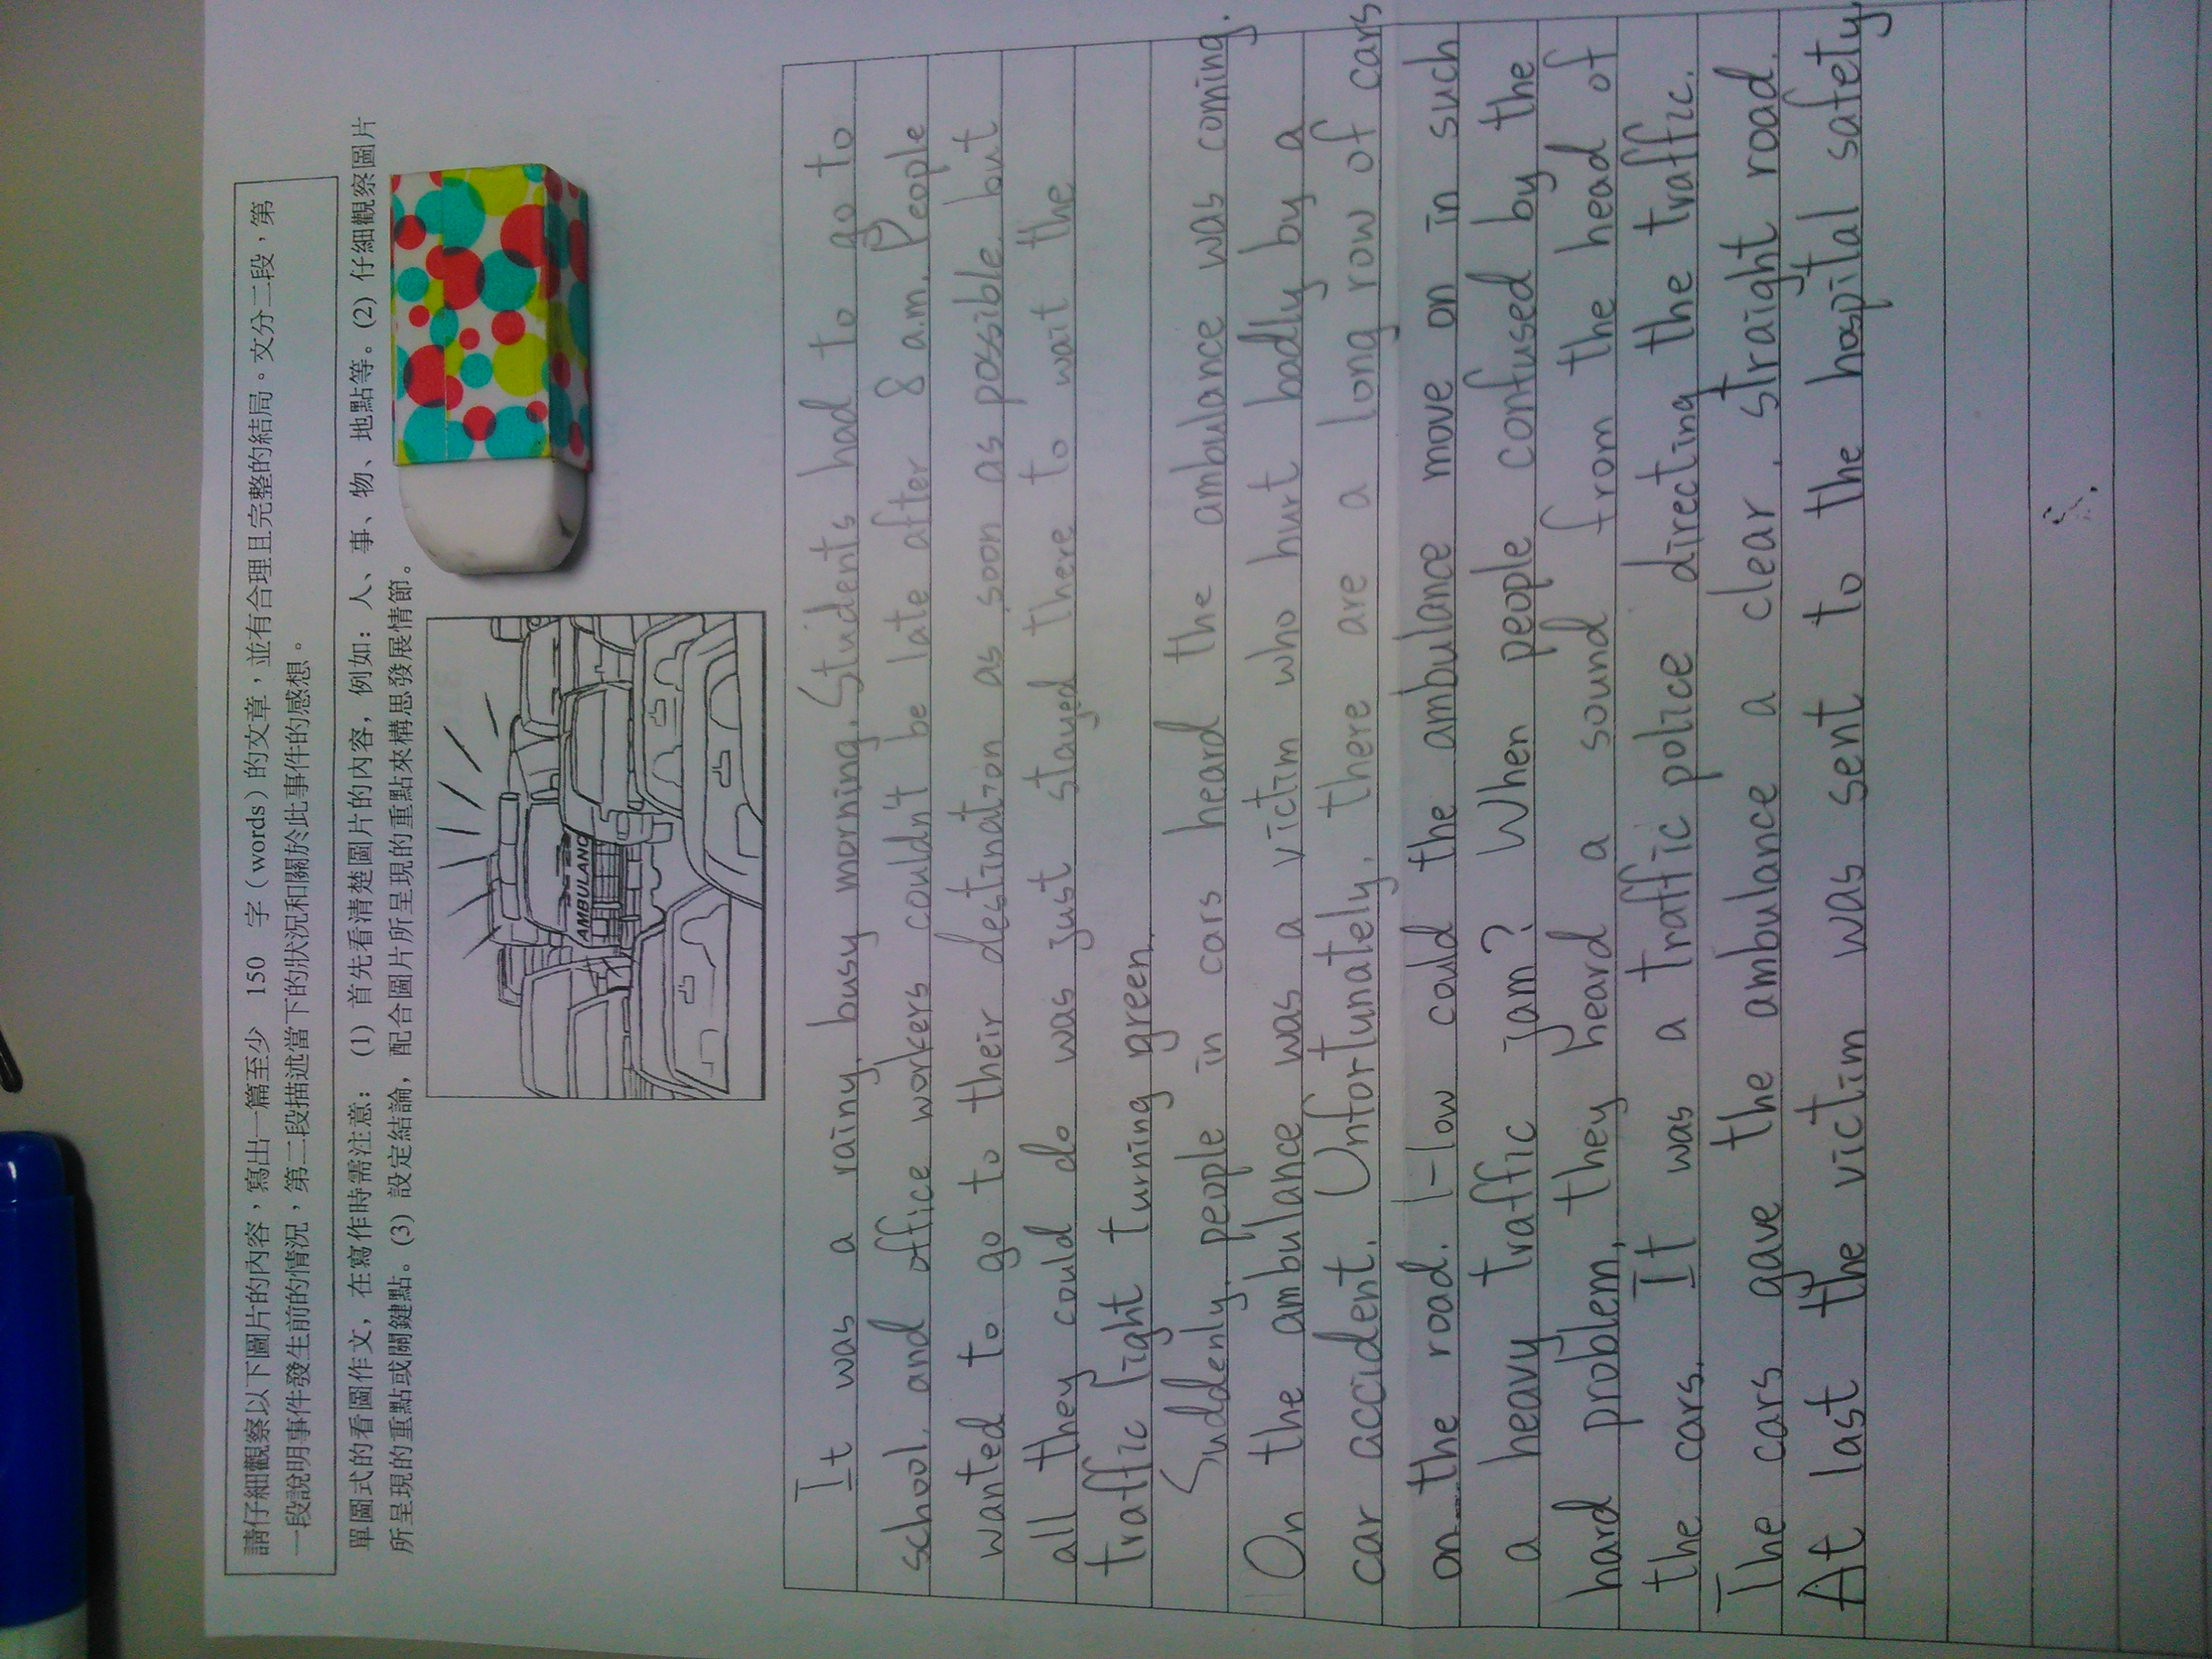 請仔細觀察以下圖片的內容，寫出一篇至少 150 字（words）的文章，並有合理且完整的結局。文分二段，第
一段說明事件發生前的情況，第二段描述當下的狀況和關於此事件的感想。
單圖式的看圖作文，在寫作時需注意：(1) 首先看清楚圖片的內容，例如：人、事、物、地點等。(2) 仔細觀察圖片
所呈現的重點或關鍵點。(3) 設定結論，配合圖片所呈現的重點來構思發展情節。
AMBULANC
It was a rainy, busy morning. Students had to go to
school, and office workers couldn't be late after 8 a.m. People
wanted to go to their destination as soon as possible, but
all they could do was just stayed there to wait the
traffic light turning green.
Suddenly, people in cars heard the ambulance was coming.
On the ambulance was a victim who hurt badly by a
car accident. Unfortunately, there are a long row of cars
on the road. How could the ambulance move on in such
a heavy traffic jam? When people confused by the
hard problem, they heard a sound from the head of
the cars. It was a traffic police directing the traffic.
The cars gave the ambulance a clear, straight road.
At last the victim was sent to the hospital safety